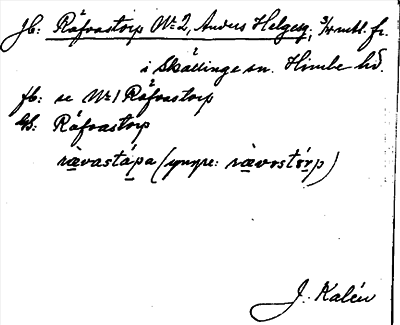 Jb: Råfvastorp No 2, Anders Helgeg, 3/4 mtl. fr.
i Skällinge sn. Himle hd.
fb: se No 1 Råfvastorp
Gs: Råfvastorp
rävastápa (yngre: rävostórp)
J. Kalén